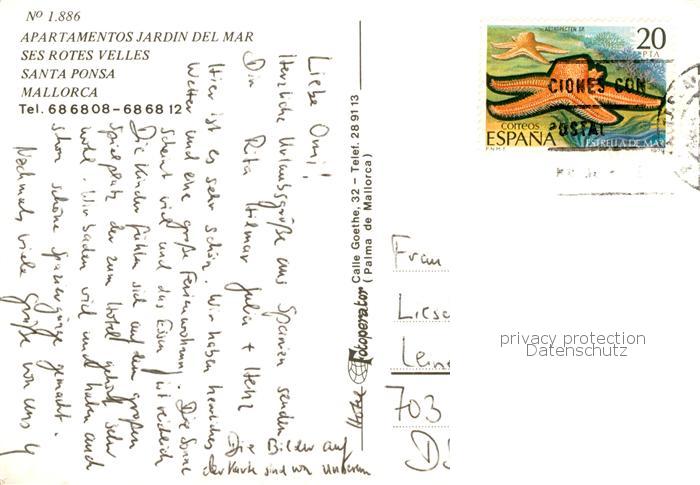 Nº 1.886
APARTAMENTOS JARDIN DEL MAR
SES ROTES VELLES
SANTA PONSA
MALLORCA
Tel. 686808-6868 12
Liebe Omi!
Herzliche Urlaubsgrüße aus Spanien senden
Dir Rita Hilmar Julia +
Hier ist es sehr schön. Wir haben herrliches
Wetter und eine große Ferienwohnung. Die Sonne
scheint viel und das Essen ist reichlich
Die Kinder fühlen sich auf dem großen
Spielplatz der zum Hotel gehört sehr
wohl. Wir baden viel und haben auch
schon schöne Spaziergänge gemacht.
Nochmals viele Grüße von uns 4
Die Bilder auf
der Karte sind von unserem
Fotoperator Calle Goethe, 32 - Telef. 28 91 13
(Palma de Mallorca)
ASTROPECTEN SP.
20
PTA
CIONES CON
POSTAL
correos
ESPAÑA
ESTRELLA DE MAR
F.N.M.T.
Frau
703
privacy protection
Datenschutz